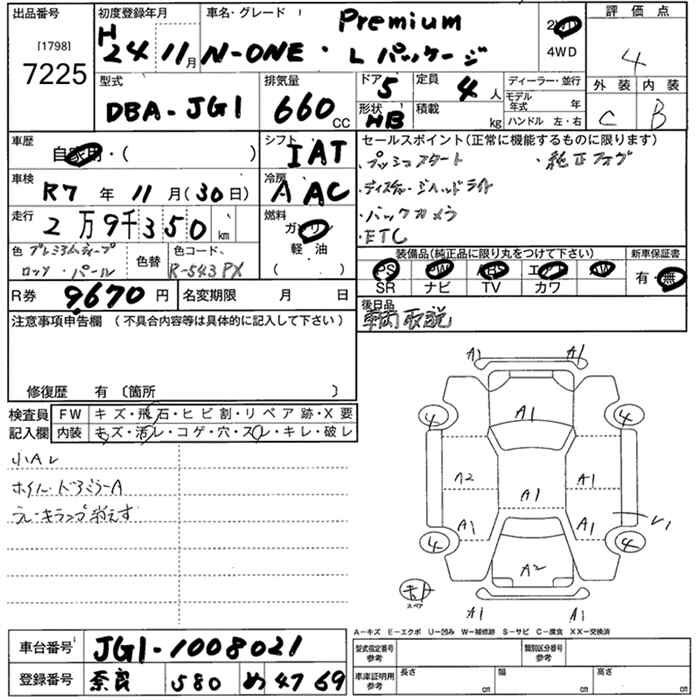 出品番号 初度登録年月 車名・グレード Premium 評価点
[1798] 7225 H24 11月 N-ONE・Lパッケージ 2WD 4WD 4
型式 排気量 ドア 5 定員 4人 ディーラー・並行 外装 内装
DBA-JG1 660cc 形状 HB 積載 kg モデル年式 年 ハンドル 左・右 C B
車歴 自家用・( ) シフト IAT セールスポイント(正常に機能するものに限ります)
・プッシュスタート ・純正フォグ
車検 R7年11月(30日) 冷房 AAC ・ディスチャージヘッドライト
走行 2万9千350km 燃料 ガソリン ・バックカメラ
軽・油 ・ETC
色 プレミアムディープ 色替 色コード ( ) 装備品(純正品に限り丸をつけて下さい) 新車保証書
ロッソ・パール R-543PX PS PW ABS エアB AW 有・無
R券 9,670円 名変期限 月 日 SR ナビ TV カワ
注意事項申告欄(不具合内容等は具体的に記入して下さい) 後日品
車輌取説
修復歴 有〔箇所 〕
検査員 FW キズ・飛石・ヒビ割・リペア跡・X要
記入欄 内装 キズ・汚レ・コゲ・穴・スレ・キレ・破レ
小Aレ
ホイル・ドアミラーA
ブレーキランプ消えず
A1 A1
4 A1 4
A2 A1 A1
A1 A1 V1
4 A2 4
スペア A1 A1
A-キズ E-エクボ U-凹み W-補修跡 S-サビ C-腐食 XX-交換済
車台番号 JG1-1008021 型式指定番号 参考 類別区分番号 参考
登録番号 奈良 580 め 4769 車庫証明用 参考 長さ cm 幅 cm 高さ cm